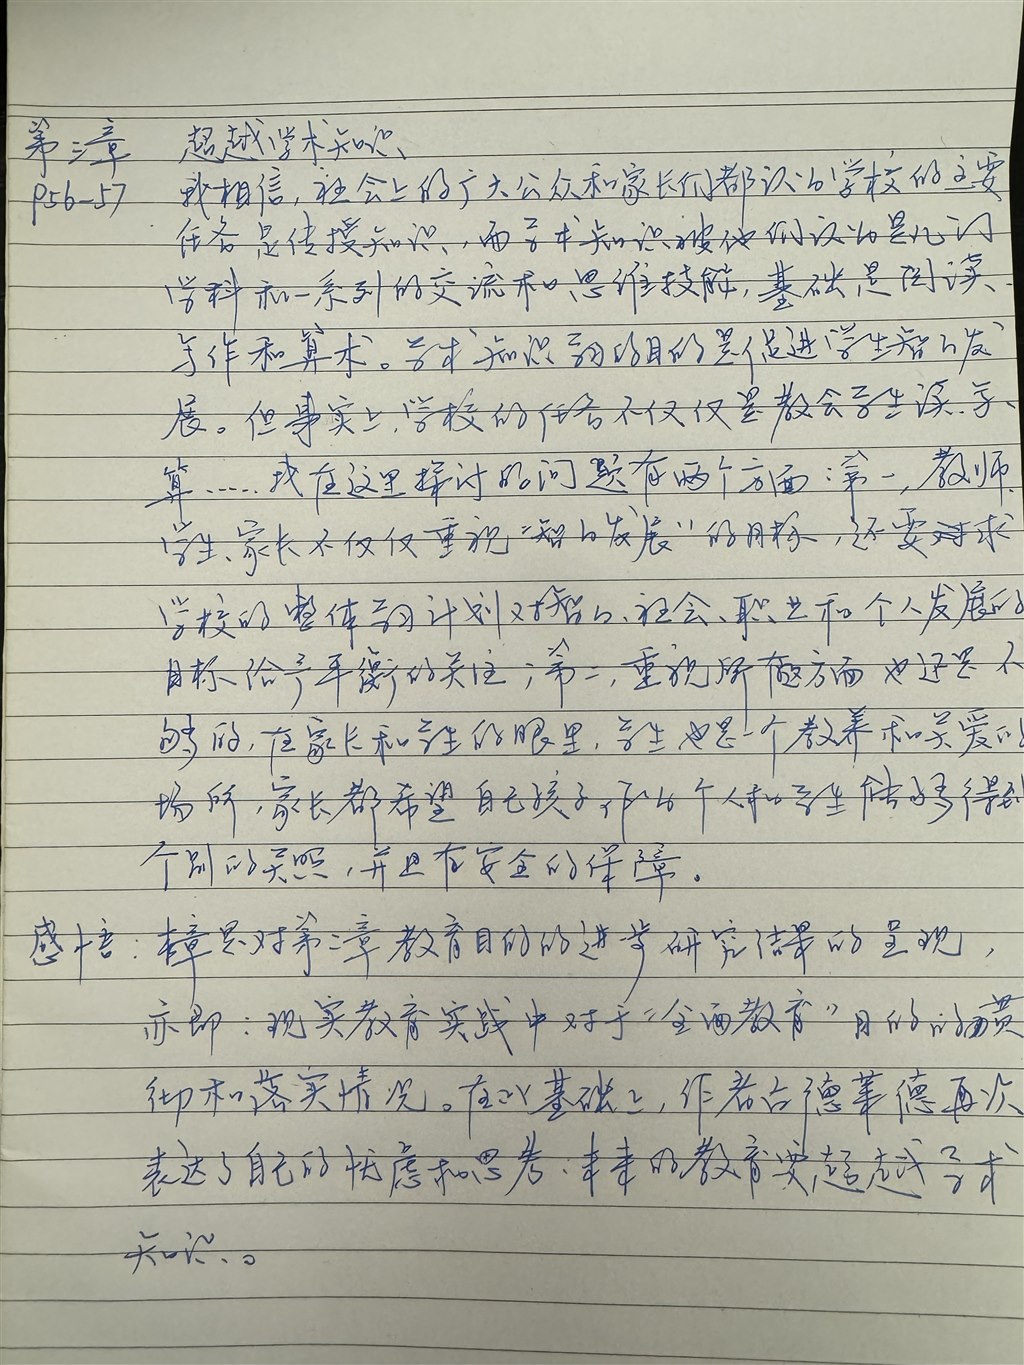 第三章 超越学术知识
P56-57 我相信，社会上的广大公众和家长们都认为学校的主要
任务是传授知识，而学术知识被他们认为是几门
学科和一系列的交流和思维技能，基础是阅读、
写作和算术。学术知识学习的目的是促进学生智力发
展。但事实上，学校的任务不仅仅是教会学生读、写、
算……我在这里探讨的问题有两个方面：第一，教师、
学生、家长不仅仅重视“智力发展”的目标，还要求
学校的整体学习计划对智力、社会、职业和个人发展的
目标给予平衡的关注；第二，重视所有这方面也还是不
够的，在家长和学生的眼里，学生也是一个教养和关爱的
场所，家长都希望自己孩子作为个人和学生能够得到
个别的关照，并且有安全的保障。
感悟：本章是对第二章教育目的的进步研究结果的呈现，
亦即：现实教育实践中对于“全面教育”目的的贯
彻和落实情况。在此基础上，作者古德莱德再次
表达了自己的忧虑和思考：未来的教育要超越学术
知识。